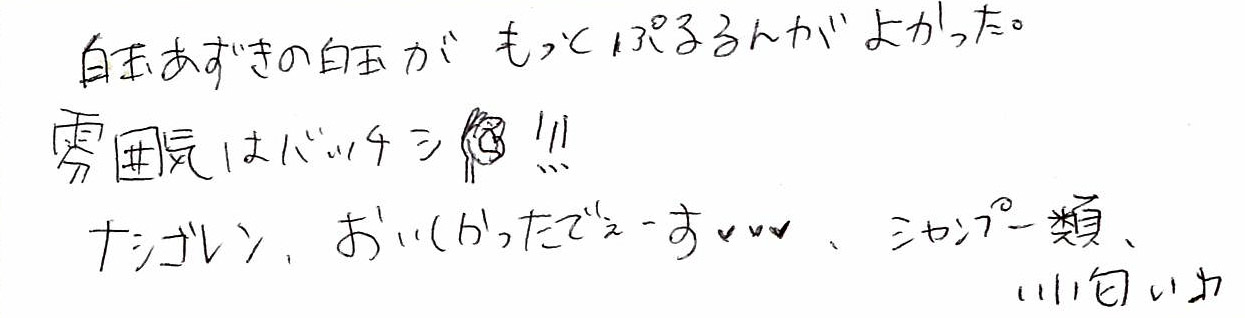 白玉あずきの白玉が もっとぷるるんがよかった。
雰囲気はバッチシ!!!
ナシゴレン、おいしかったでぇーす♥♥♥、シャンプー類、
いい匂いね